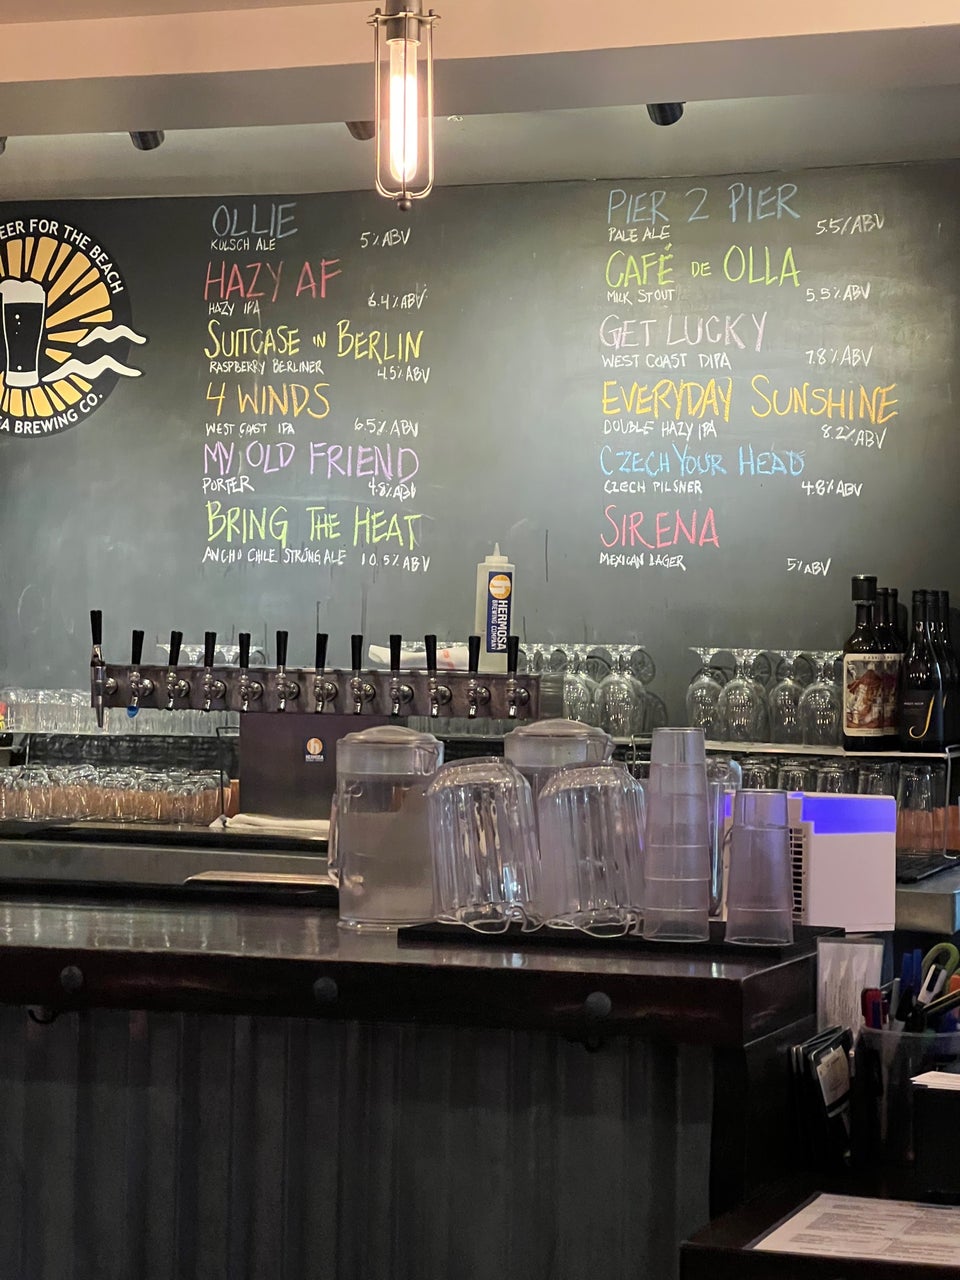 EER FOR THE BEACH
A BREWING CO.
OLLIE
KOLSCH ALE 5% ABV
HAZY AF
HAZY IPA 6.4% ABV
SUITCASE IN BERLIN
RASPBERRY BERLINER 4.5% ABV
4 WINDS
WEST COAST IPA 6.5% ABV
MY OLD FRIEND
PORTER 4.8% ABV
BRING THE HEAT
ANCHO CHILE STRONG ALE 10.5% ABV
PIER 2 PIER
PALE ALE 5.5% ABV
CAFÉ DE OLLA
MILK STOUT 5.5% ABV
GET LUCKY
WEST COAST DIPA 7.8% ABV
EVERYDAY SUNSHINE
DOUBLE HAZY IPA 8.2% ABV
CZECH YOUR HEAD
CZECH PILSNER 4.8% ABV
SIRENA
MEXICAN LAGER 5% ABV
HERMOSA
BREWING COMPANY
HERMOSA